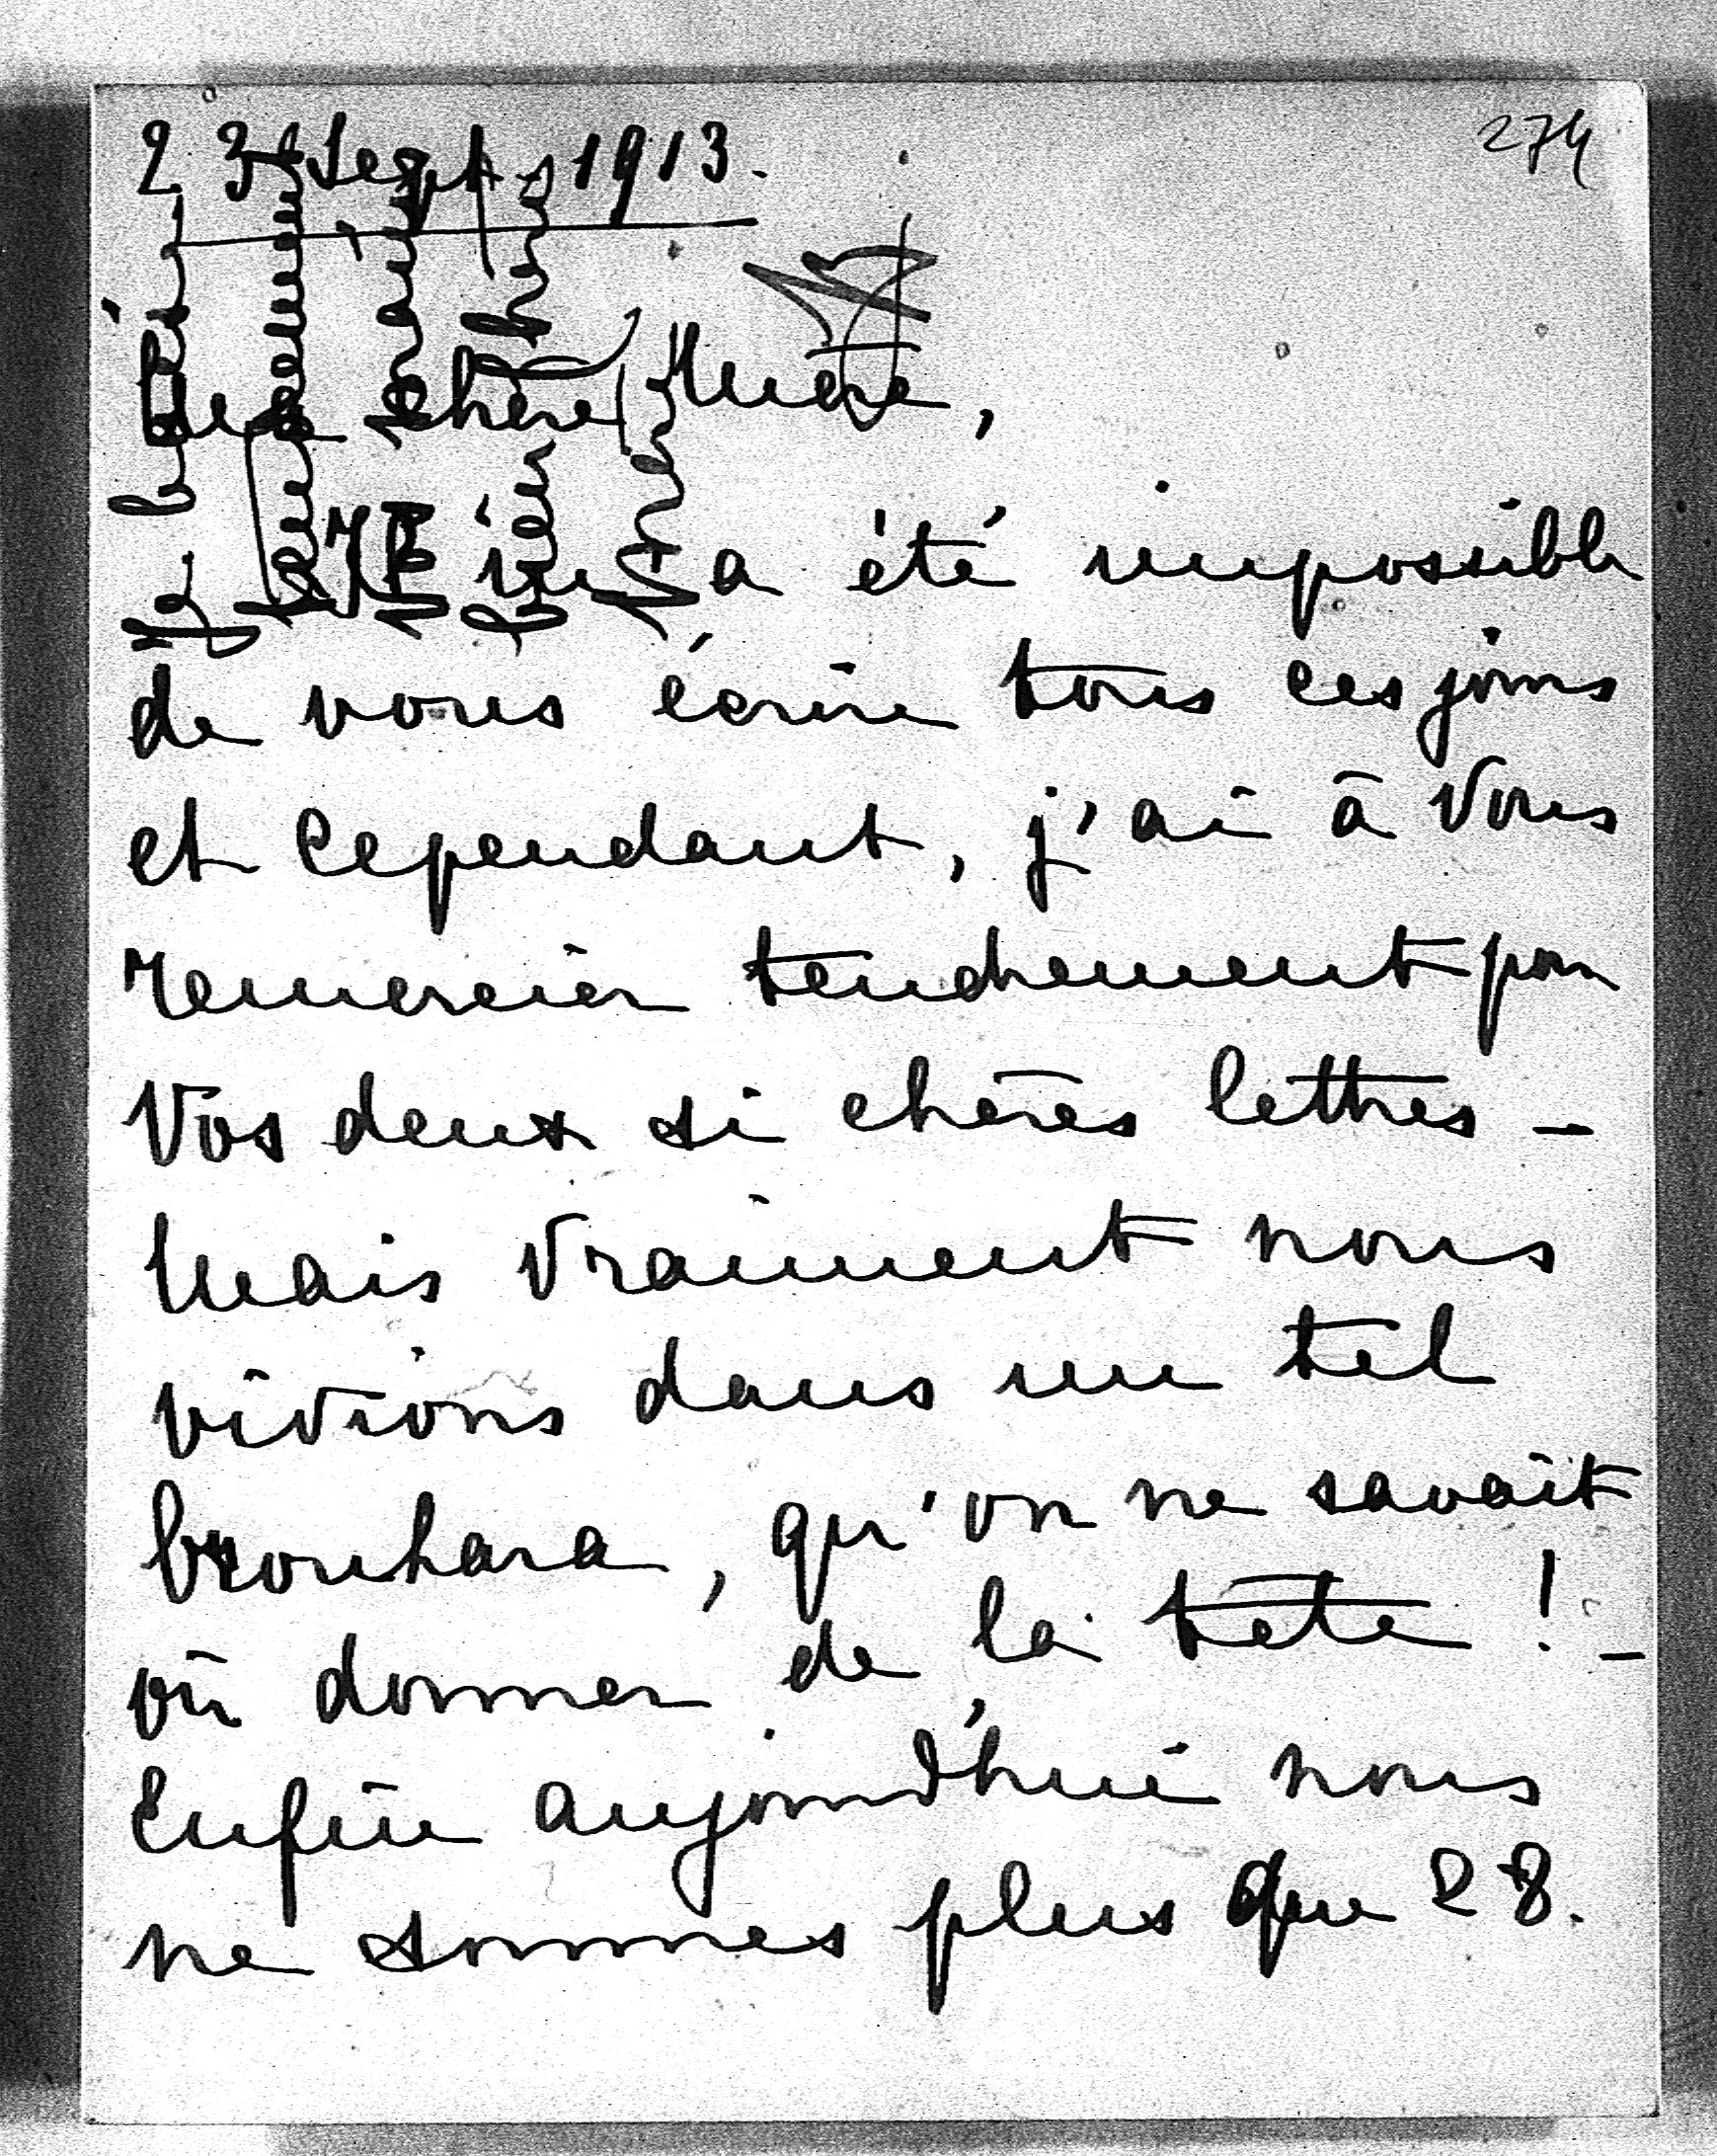 274
23 Sept. 1913.
Ma chère Mère,
Il m'a été impossible
de vous écrire tous ces jours
et cependant, j'ai à vous
remercier tendrement pour
vos deux si chères lettres –
Mais vraiment nous
vivions dans un tel
brouhara, qu'on ne savait
où donner de la tête ! –
Enfin aujourd'hui nous
ne sommes plus que 28.